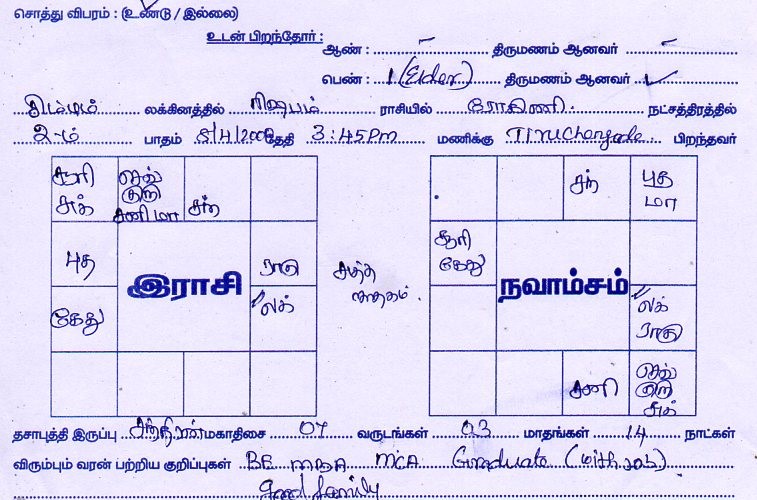 சொத்து விபரம் : (உண்டு / இல்லை)
உடன் பிறந்தோர் :
ஆண் : – திருமணம் ஆனவர் –
பெண் : 1 (Elder) திருமணம் ஆனவர் ✓
சிம்மம் லக்கினத்தில் ரிஷபம் ராசியில் ரோகிணி நட்சத்திரத்தில்
2-ம் பாதம் 8/4/2000 தேதி 3:45pm மணிக்கு Tiruchengode பிறந்தவர்
சூரி செவ் சந் புத
சுக் குரு சந் மா
சனி மா
புத ராகு சுத்த சூரி
இராசி ஜாதகம். கேது நவாம்சம்
கேது லக் லக்
ராகு
சனி செவ்
குரு
சுக்
தசாபுத்தி இருப்பு சந்திரன் மகாதிசை 07 வருடங்கள் 03 மாதங்கள் 14 நாட்கள்
விரும்பும் வரன் பற்றிய குறிப்புகள் BE MBA MCA Graduate (with job)
good family